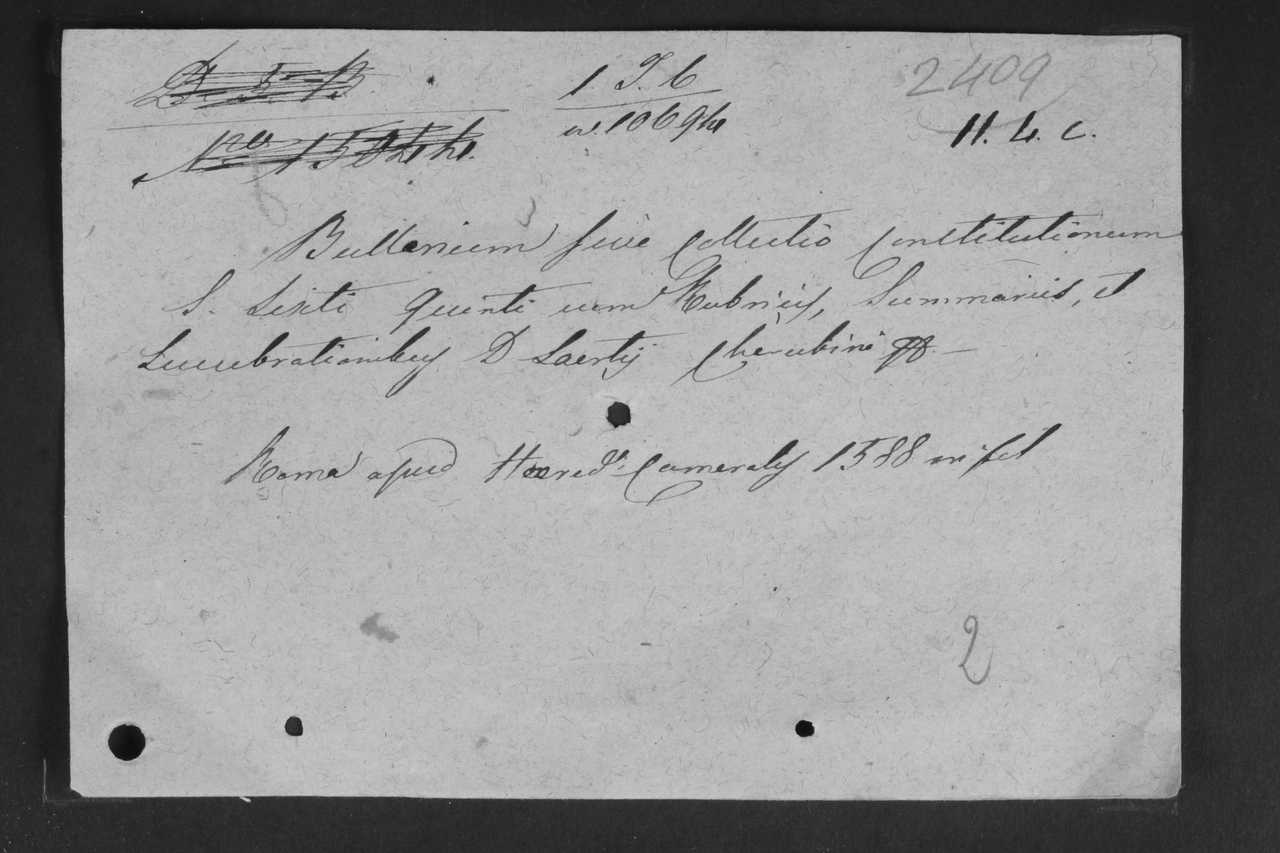 1 T. 6
2409
w. 10694
11. 4. c.
Bullarium sive Collectio Constitutionum
S. Sixti Quinti cum Rubricis, Summariis, et
Lucubrationibus D Laertij Cherubini
Roma apud Haered. Cameralis 1588 in fol
2